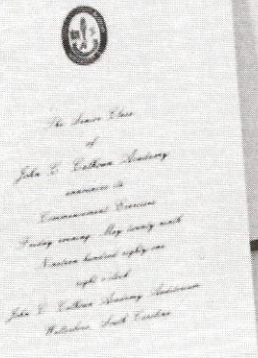 The Senior Class
of
John C. Calhoun Academy
announces its
Commencement Exercises
Friday evening, May twenty ninth
Nineteen hundred eighty-one
eight o'clock
John C. Calhoun Academy Auditorium
Walterboro, South Carolina